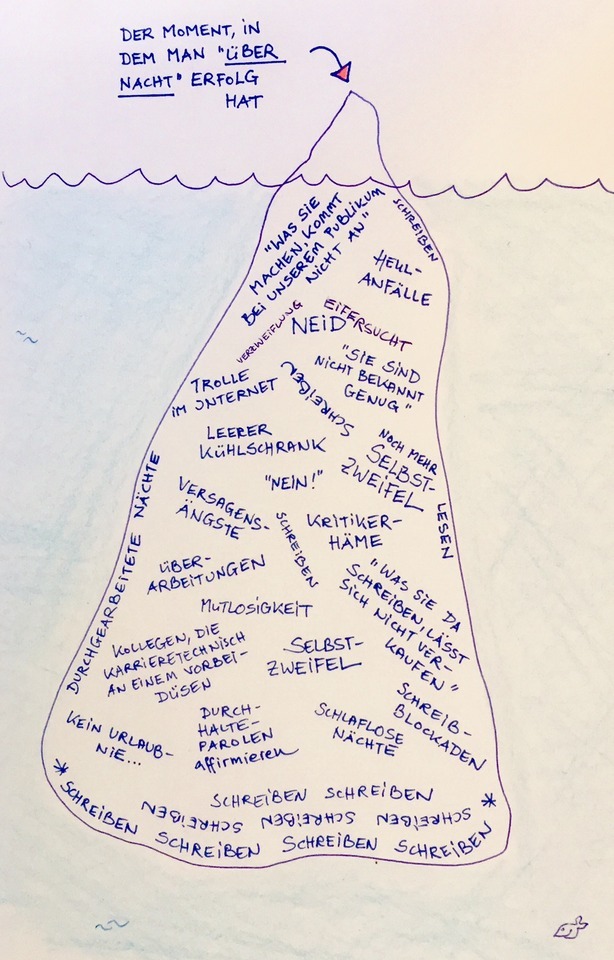 DER MOMENT, IN
DEM MAN "ÜBER
NACHT" ERFOLG
HAT
"WAS SIE
MACHEN, KOMMT
BEI UNSEREM PUBLIKUM
NICHT AN"
SCHREIBEN
HEUL-
ANFÄLLE
VERZWEIFLUNG
EIFERSUCHT
NEID
"SIE SIND
NICHT BEKANNT
GENUG"
TROLLE
IM INTERNET
SCHREIBEN
LEERER
KÜHLSCHRANK
NOCH MEHR
SELBST-
ZWEIFEL
"NEIN!"
DURCHGEARBEITETE NÄCHTE
VERSAGENS-
ÄNGSTE
SCHREIBEN
KRITIKER-
HÄME
LESEN
ÜBER-
ARBEITUNGEN
"WAS SIE DA
SCHREIBEN, LÄSST
SICH NICHT VER-
KAUFEN"
MUTLOSIGKEIT
KOLLEGEN, DIE
KARRIERETECHNISCH
AN EINEM VORBEI-
DÜSEN
SELBST-
ZWEIFEL
SCHREIB-
BLOCKADEN
KEIN URLAUB-
NIE...
DURCH-
HALTE-
PAROLEN
affirmieren
SCHLAFLOSE
NÄCHTE
SCHREIBEN SCHREIBEN
SCHREIBEN SCHREIBEN SCHREIBEN
* SCHREIBEN SCHREIBEN SCHREIBEN SCHREIBEN *